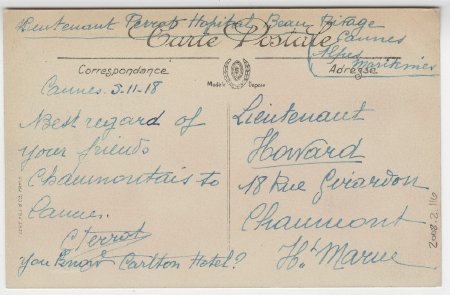 Lieutenant Perrot Hopital Beau Rivage
Cannes
Alpes
Maritimes
Carte Postale
Correspondance
Adresse
Modèle Déposé
Cannes. 5-11-18
Best regard of
your friends
Chaumontais to
Cannes.
Perrot
You know Carlton Hotel?
Lieutenant
Howard
18 Rue Girardon
Chaumont
Hte Marne
2008.2.116